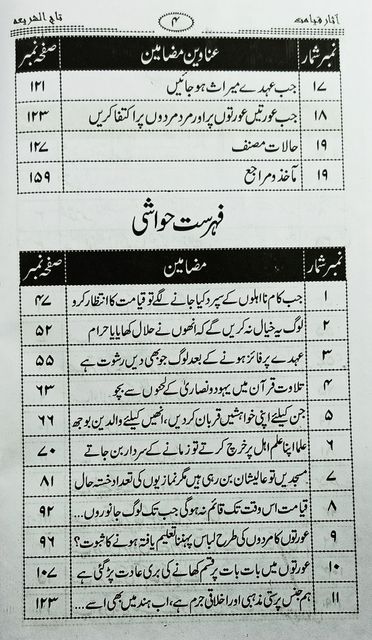 آثار قیامت ۴ تاج الشریعہ
نمبر شمار عناوین مضامین صفحہ نمبر
۱۷ جب عہدے میراث ہو جائیں ۱۲۱
۱۸ جب عورتیں عورتوں پر اور مرد مردوں پر اکتفا کریں ۱۲۳
۱۹ حالات مصنف ۱۲۷
۱۹ مآخذ و مراجع ۱۵۹
فہرست حواشی
نمبر شمار مضامین صفحہ نمبر
۱ جب کام نااہلوں کے سپرد کیا جانے لگے تو قیامت کا انتظار کرو ۴۷
۲ لوگ یہ خیال نہ کریں گے کہ انھوں نے حلال کھایا یا حرام ۵۲
۳ عہدے پر فائز ہونے کے بعد لوگ جو بھی دیں رشوت ہے ۵۵
۴ تلاوت قرآن میں یہود و نصاریٰ کے لحنوں سے بچو ۶۳
۵ جن کیلئے اپنی خواہشیں قربان کردیں، انھیں کیلئے والدین بوجھ ۶۶
۶ علما اپنا علم اہل پر خرچ کرتے تو زمانے کے سردار بن جاتے ۷۰
۷ مسجدیں تو عالیشان بن رہی ہیں مگر نمازیوں کی تعداد خستہ حال ۸۱
۸ قیامت اس وقت تک قائم نہ ہوگی جب تک لوگ جانوروں... ۹۲
۹ عورتوں کا مردوں کی طرح لباس پہننا تعلیم یافتہ ہونے کا ثبوت؟ ۹۶
۱۰ عورتوں میں بات بات پر قسم کھانے کی بری عادت پڑ گئی ہے ۱۰۷
۱۱ ہم جنس پرستی مذہبی اور اخلاقی جرم ہے، اب ہند میں بھی اسے... ۱۲۳